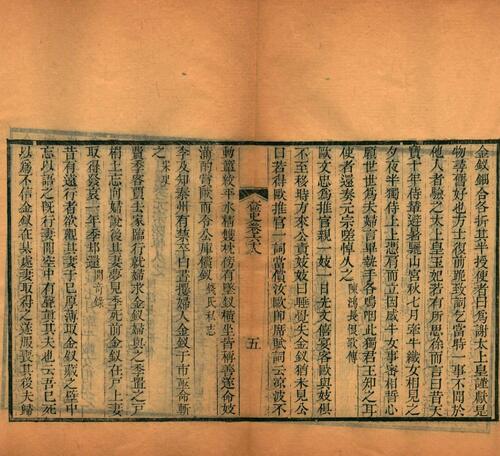 金釵鈿合各折其半授使者曰爲謝太上皇謹獻是
物尋舊好也方士復前跪致詞乞當時一事不聞於
他人者驗之太上皇玉妃若有所思徐而言曰昔天
寶十年侍輦避暑驪山宮秋七月牽牛織女相見之
夕夜半獨侍上上憑肩而立因感牛女事密相誓心
願世世爲夫婦言畢執手各嗚咽此獨君王知之耳
使者還奏元宗嗟悼久之 陳鴻長恨歌傳
歐文忠爲推官親一妓一日先文僖宴客歐與妓俱
不至移時方來公責妓妓曰睡覺失金釵猶未見公
曰若得歐推官一詞當償汝歐即席賦詞云涼波不
奩史卷六八
五
動簟紋平水精雙枕傍有墜釵橫坐皆稱善遂命妓
滿酌賞歐而令公庫償釵 錢氏私志
李及知秦州有禁卒白晝攫婦人金釵于市亟命斬
之 宋史
賈季客賈去家臨行就婦求金釵婦與之季置之戶
楣上忘前婦說後其妻夢見季死前金釵在戶上妻
取得發哀一年季却還 幽明錄
昔有遠行者欲觀其妻于己厚薄取金釵藏之壁中
忘以語之既行妻聞空中有聲眞其夫也云吾已死
以爲不信金釵在某處妻取得之遂服喪其後夫歸